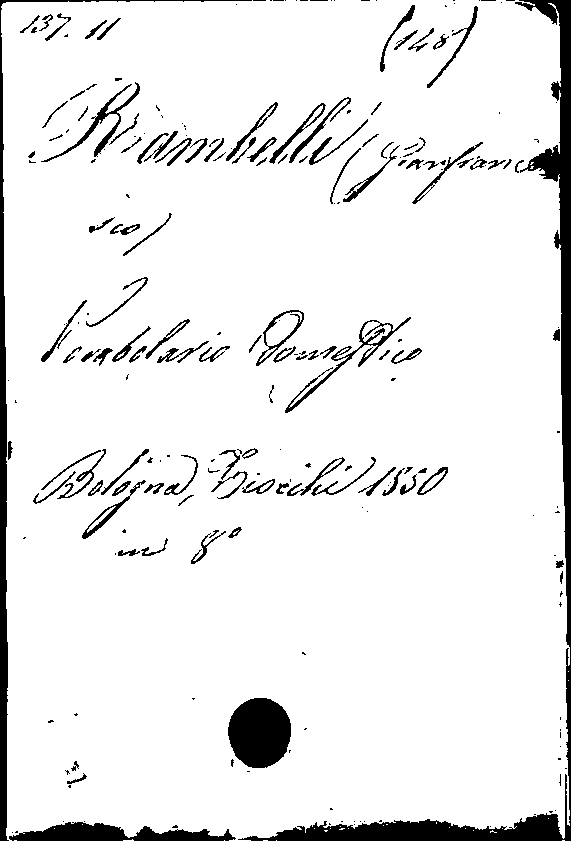 137. 11 (148)
Rambelli (Gianfrance
sco)
Vocabolario Domestico
Bologna, Tiocchi 1850
in 8°